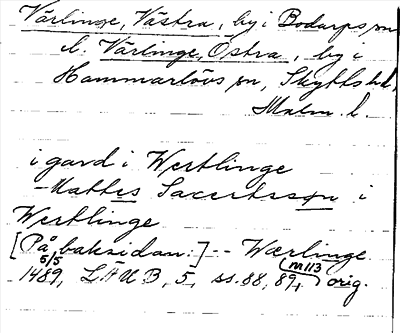 Värlinge, Västra, by i Bodarps sn
l. Värlinge, Östra, by i
Hammarlövs sn, Skytts hd,
Malm. l.
i gard i Wertlinge
- Mattes Saxertsson i
Wertlinge
[På baksidan:] -- Wærlinge
5/5 M 113
1489, LÄUB, 5, ss. 88, 89, orig.